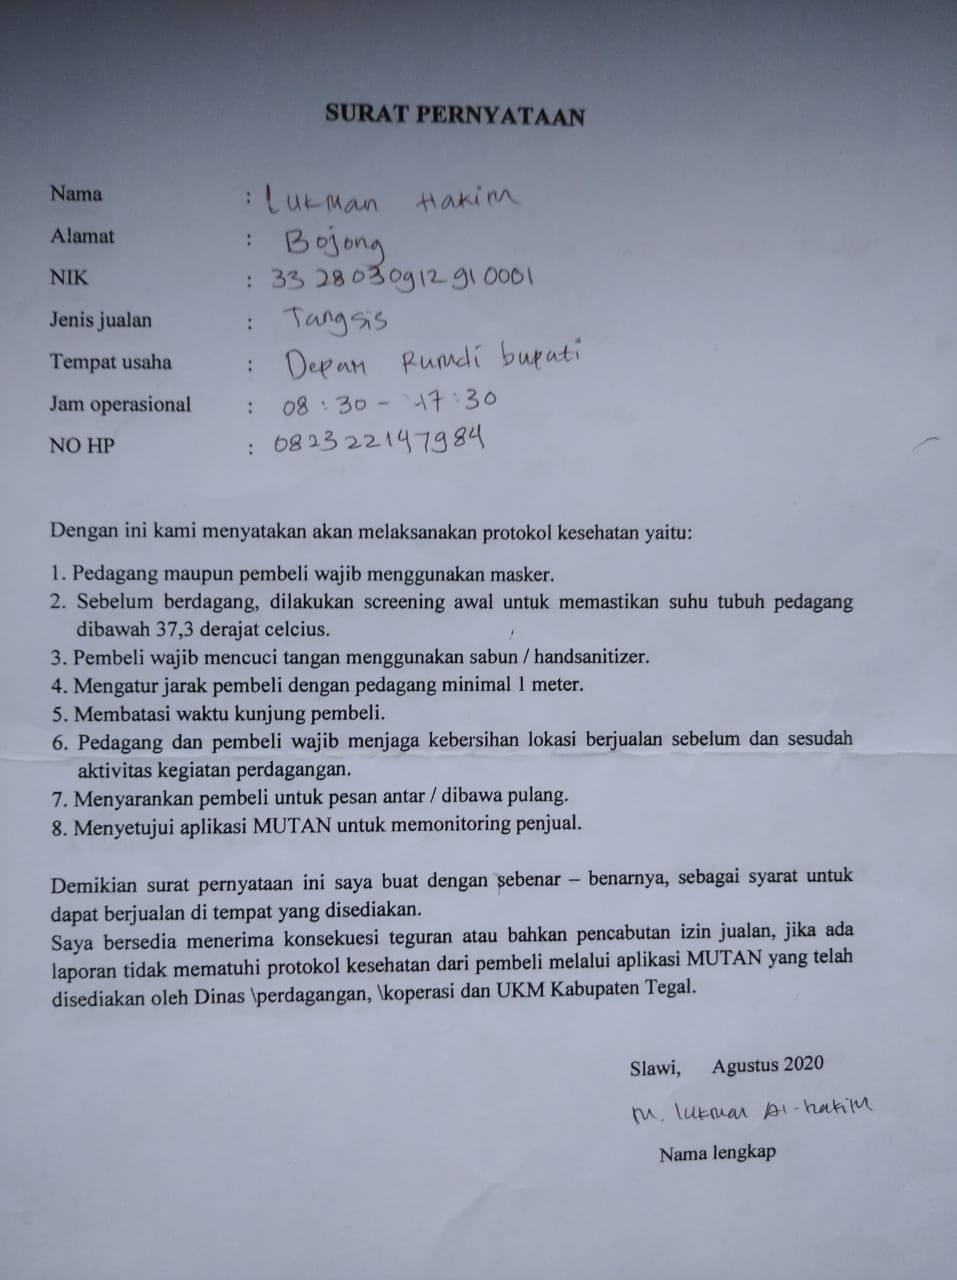 SURAT PERNYATAAN
Nama : Lukman Hakim
Alamat : Bojong
NIK : 3328030912910001
Jenis jualan : Tangsis
Tempat usaha : Depan Rumdi bupati
Jam operasional : 08:30 - 17:30
NO HP : 082322147984
Dengan ini kami menyatakan akan melaksanakan protokol kesehatan yaitu:
1. Pedagang maupun pembeli wajib menggunakan masker.
2. Sebelum berdagang, dilakukan screening awal untuk memastikan suhu tubuh pedagang
dibawah 37,3 derajat celcius.
3. Pembeli wajib mencuci tangan menggunakan sabun / handsanitizer.
4. Mengatur jarak pembeli dengan pedagang minimal 1 meter.
5. Membatasi waktu kunjung pembeli.
6. Pedagang dan pembeli wajib menjaga kebersihan lokasi berjualan sebelum dan sesudah
aktivitas kegiatan perdagangan.
7. Menyarankan pembeli untuk pesan antar / dibawa pulang.
8. Menyetujui aplikasi MUTAN untuk memonitoring penjual.
Demikian surat pernyataan ini saya buat dengan sebenar – benarnya, sebagai syarat untuk
dapat berjualan di tempat yang disediakan.
Saya bersedia menerima konsekuesi teguran atau bahkan pencabutan izin jualan, jika ada
laporan tidak mematuhi protokol kesehatan dari pembeli melalui aplikasi MUTAN yang telah
disediakan oleh Dinas \perdagangan, \koperasi dan UKM Kabupaten Tegal.
Slawi, Agustus 2020
M. lukman Al-hakim
Nama lengkap